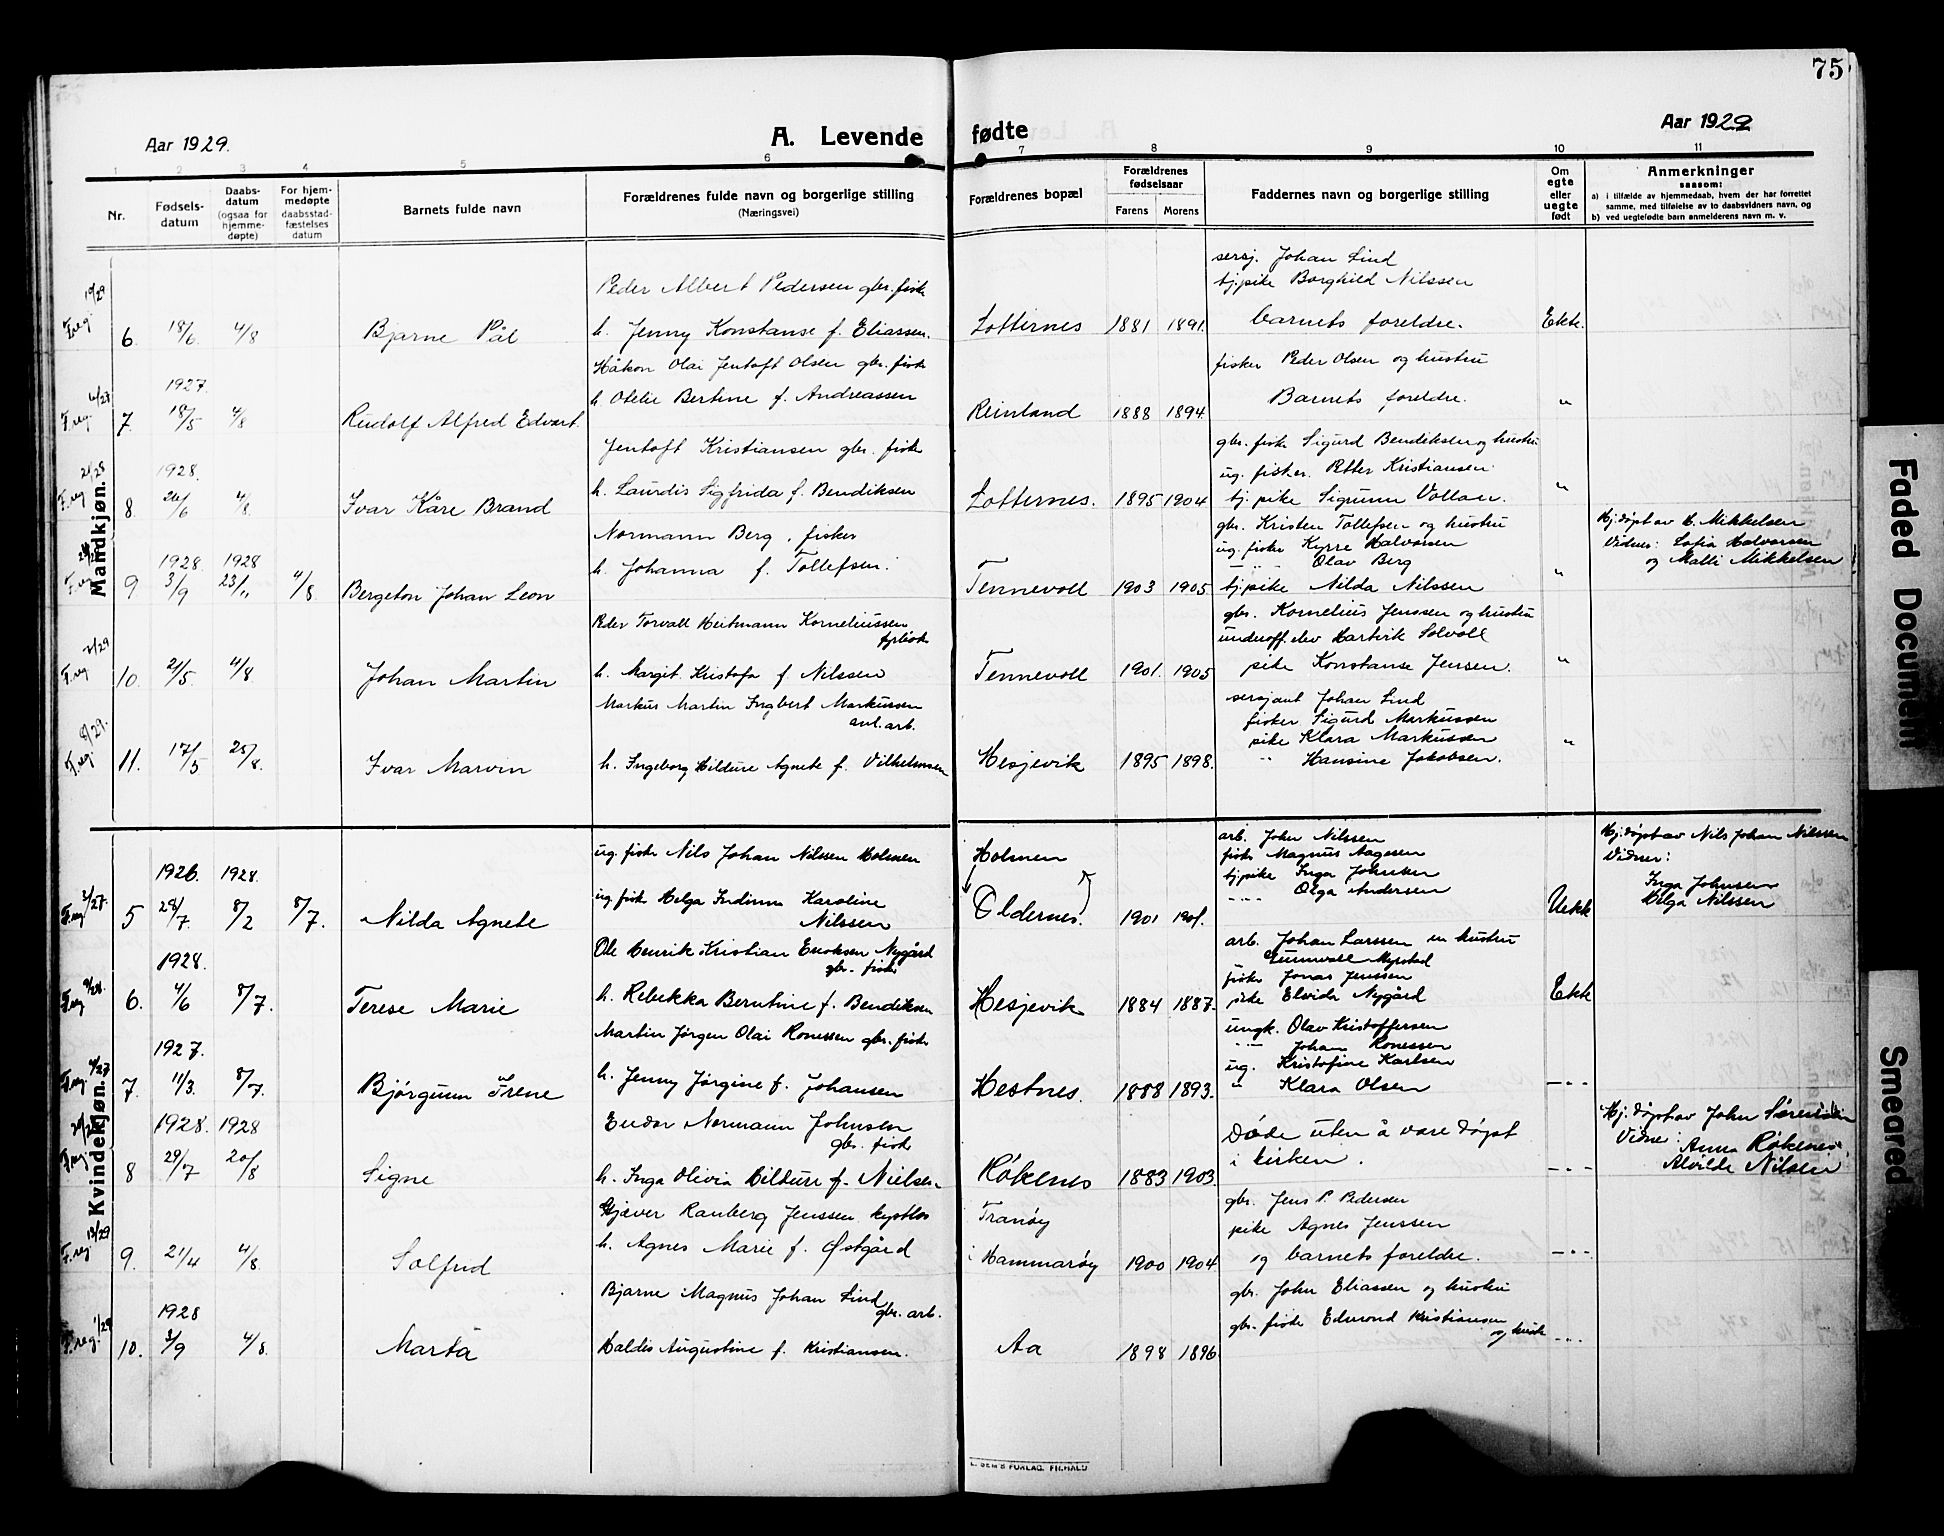 75
Aar 1929.
A. Levende fødte
Aar 1929
1 2 3 4 5 6 7 8 9 10 11
Nr.
Fødsels-
datum
Daabs-
datum
(ogsaa for
hjemme-
døpte)
For hjem-
medøpte
daabsstad-
fæstelses
datum
Barnets fulde navn
Forældrenes fulde navn og borgerlige stilling
(Næringsvei)
Forældrenes bopæl
Forældrenes
fødselsaar
Farens Morens
Faddernes navn og borgerlige stilling
Om
egte
eller
uegte
født
Anmerkninger
saasom:
a) i tilfælde av hjemmedaab, hvem der har forrettet
samme, med tilføielse av to daabsvidners navn, og
b) ved uegtefødte barn anmelderens navn m. v.
Mandkjøn.
F.reg. 19/29
6. 18/6. 4/8
Bjarne Pål
Peder Albert Pedersen gbr. fisk
h. Jenny Konstanse f. Eliassen.
Lotternes 1881 1891.
sersj. Johan Lind
tj.pike Borghild Nilssen
barnets foreldre.
Ekte.
F.reg.
7. 1927. 18/5 4/8
Rudolf Alfred Edvart.
Håkon Olai Jentoft Olsen gbr. fisk
h Otelie Bertine f. Andreassen
Reinland 1888 1894.
fisker Peder Olsen og hustru
Barnets foreldre.
"
F.reg 21/28
8. 1928. 26/6 4/8.
Ivar Kåre Brand
Jentoft Kristiansen gbr. fisk
h. Laurdis Sigfrida f. Bendiksen
Lotternes. 1895 1904
gbr. fisk Sigurd Bendiksen og hustru
ug. fisker. Petter Kristiansen
tj. pike Sigrunn Vollan.
"
9 1928. 3/9 1928 23/11 4/8
Bergeton Johan Leon
Normann Berg, fisker
h. Johanna f. Tollefsen.
Tennevoll 1903 1905
gbr. Kristen Tollefsen og hustru
ug. fisker Kyrre Halvorsen
" " Olav Berg
tj.pike Nilda Nilssen
"
Hj.døpt av H. Mikkelsen
Vidner: Sofia Halvorsen
og Malli Mikkelsen
F.reg
10. 21/5. 4/8.
Johan Martin
Peder Torvald Heitmann Korneliussen
h. Margit Kristofa f Nilssen
Tennevoll 1901. 1905
gbr. Kornelius Jenssen og hustru
underoff. elev Hartvik Solvoll
pike Konstanse Jensen.
"
F.reg. 8/29.
11. 17/5 25/8.
Ivar Marvin
Markus Martin Ingbert Markussen
anl. arb.
h. Ingeborg Hildure Agnete f. Vilhelmsen
Hesjevik 1895 1898.
sersjant Johan Lind
fisker Sigurd Markussen
pike Klara Markussen
" Hansine Jakobsen.
"
Kvindekjøn.
F.reg 2/27.
5 1926. 28/7. 1928. 8/2 8/7.
Nilda Agnete
ug. fisk Nils Johan Nilssen Holmen
ug. fisk Helga Indiana Karoline
Nilssen
Holmen
Oldernes. 1901 1901.
arb. John Nilssen
fisk Magnus Aagesen
tj.pike Inga Johnsen
" " Olga Andersen
Uekte
Hj.døpt av Nils Johan Nilssen
Vidner:
Inga Johnsen
Helga Nilssen
F.reg
6. 1928. 4/6 8/7.
Terese Marie
Ole Henrik Kristian Enoksen Nygård
gbr. fisk
h. Rebekka Berntine f. Bendiksen
Hesjevik 1884 1887.
arb. Johan Larssen m hustru
Gunnvall Myrstad
fisker Jonas Jenssen
pike Elvida Nygård
Ekte
F.reg
7. 1927. 11/3. 8/7.
Bjørgunn Irene
Martin Jørgen Olai Ronessen gbr. fisk
h. Jenny Jørgine f. Johansen
Hestnes. 1888 1893.
ungk. Olav Kristoffersen
" Johan Ronessen
ug. Kristofine Karlsen
" Klara Olsen
"
F.reg
8 1928. 29/7 1928 20/8
Signe
Endor Normann Johnsen
gbr. fisk
h. Inga Olivia Hildure f. Nielsen
Røkenes 1883 1903.
Døde uten å være døpt
i kirken.
"
Hj. døpt av John Sørensen
Vidne:
Anna Røkenes,
Alvilde Nilsen
F.reg 13/29
9. 21/4 4/8.
Solfrid
Gjæver Ranberg Jenssen kystlos
h. Agnes Marie f. Østgård
Tranøy
i Hammarøy 1900 1904
gbr. Jens P. Pedersen
pike Agnes Jenssen
og barnets foreldre.
"
F.reg. 1/29
10. 1928 3/9 4/8.
Marta
Bjarne Magnus Johan Lind
gbr. arb.
Haldis Augustine f. Kristiansen.
Aa 1898 1896.
gbr. John Eliassen og hustru
gbr. fisk Edmond Kristiansen
og hustr
"
E. SEM'S FORLAG, FR.HALD
Faded Document
Smeared